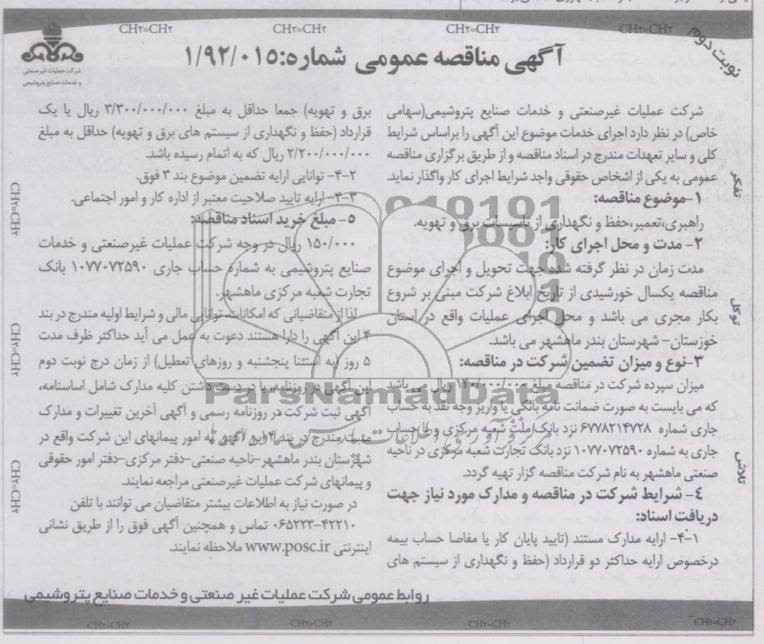 CH۲=CH۲ CH۲=CH۲ CH۲=CH۲ CH۲=CH۲
نوبت دوم
شرکت عملیات غیرصنعتی
و خدمات صنایع پتروشیمی
آگهی مناقصه عمومی شماره:۱/۹۲/۰۱۵
شرکت عملیات غیرصنعتی و خدمات صنایع پتروشیمی(سهامی
خاص) در نظر دارد اجرای خدمات موضوع این آگهی را براساس شرایط
کلی و سایر تعهدات مندرج در اسناد مناقصه و از طریق برگزاری مناقصه
عمومی به یکی از اشخاص حقوقی واجد شرایط اجرای کار واگذار نماید.
۱-موضوع مناقصه:
راهبری،تعمیر،حفظ و نگهداری از تاسیسات برق و تهویه.
۲- مدت و محل اجرای کار:
مدت زمان در نظر گرفته شده جهت تحویل و اجرای موضوع
مناقصه یکسال خورشیدی از تاریخ ابلاغ شرکت مبنی بر شروع
بکار مجری می باشد و محل اجرای عملیات واقع در استان
خوزستان- شهرستان بندر ماهشهر می باشد.
۳-نوع و میزان تضمین شرکت در مناقصه:
میزان سپرده شرکت در مناقصه مبلغ ۱۴۰/۰۰۰/۰۰۰ ریال می باشد
که می بایست به صورت ضمانت نامه بانکی یا واریز وجه نقد به حساب
جاری شماره ۶۷۷۸۲۱۴۷۲۸ نزد بانک ملت شعبه مرکزی و یا حساب
جاری به شماره ۱۰۷۷۰۷۲۵۹۰ نزد بانک تجارت شعبه مرکزی در ناحیه
صنعتی ماهشهر به نام شرکت مناقصه گزار تهیه گردد.
۴- شرایط شرکت در مناقصه و مدارک مورد نیاز جهت
دریافت اسناد:
۴-۱- ارایه مدارک مستند (تایید پایان کار یا مفاصا حساب بیمه
درخصوص ارایه حداکثر دو قرارداد (حفظ و نگهداری از سیستم های
برق و تهویه) جمعا حداقل به مبلغ ۳/۳۰۰/۰۰۰/۰۰۰ ریال یا یک
قرارداد (حفظ و نگهداری از سیستم های برق و تهویه) حداقل به مبلغ
۲/۲۰۰/۰۰۰/۰۰۰ ریال که به اتمام رسیده باشد.
۴-۲- توانایی ارایه تضمین موضوع بند ۳ فوق.
۴-۳- ارایه تایید صلاحیت معتبر از اداره کار و امور اجتماعی.
۵- مبلغ خرید اسناد مناقصه:
۱۵۰/۰۰۰ ریال در وجه شرکت عملیات غیرصنعتی و خدمات
صنایع پتروشیمی به شماره حساب جاری ۱۰۷۷۰۷۲۵۹۰ بانک
تجارت شعبه مرکزی ماهشهر.
لذا از متقاضیانی که امکانات، توانایی مالی و شرایط اولیه مندرج در بند
۴ این آگهی را دارا هستند دعوت به عمل می آید حداکثر ظرف مدت
۵ روز (به استثنا پنجشنبه و روزهای تعطیل) از زمان درج نوبت دوم
این آگهی در روزنامه، با در دست داشتن کلیه مدارک شامل اساسنامه،
آگهی ثبت شرکت در روزنامه رسمی و آگهی آخرین تغییرات و مدارک
مثبته مندرج در بند ۴ این آگهی به امور پیمانهای این شرکت واقع در
شهرستان بندر ماهشهر-ناحیه صنعتی-دفتر مرکزی-دفتر امور حقوقی
و پیمانهای شرکت عملیات غیرصنعتی مراجعه نمایند.
در صورت نیاز به اطلاعات بیشتر متقاضیان می توانند با تلفن
۰۶۵۲۲۳-۴۲۲۱۰ تماس و همچنین آگهی فوق را از طریق نشانی
اینترنتی www.posc.ir ملاحظه نمایند.
تفکر
توکل
تلاش
CH۲=CH۲
CH۲=CH۲
CH۲=CH۲
ParsNamadData
روابط عمومی شرکت عملیات غیر صنعتی و خدمات صنایع پتروشیمی
CH۲=CH۲ CH۲=CH۲ CH۲=CH۲ CH۲=CH۲